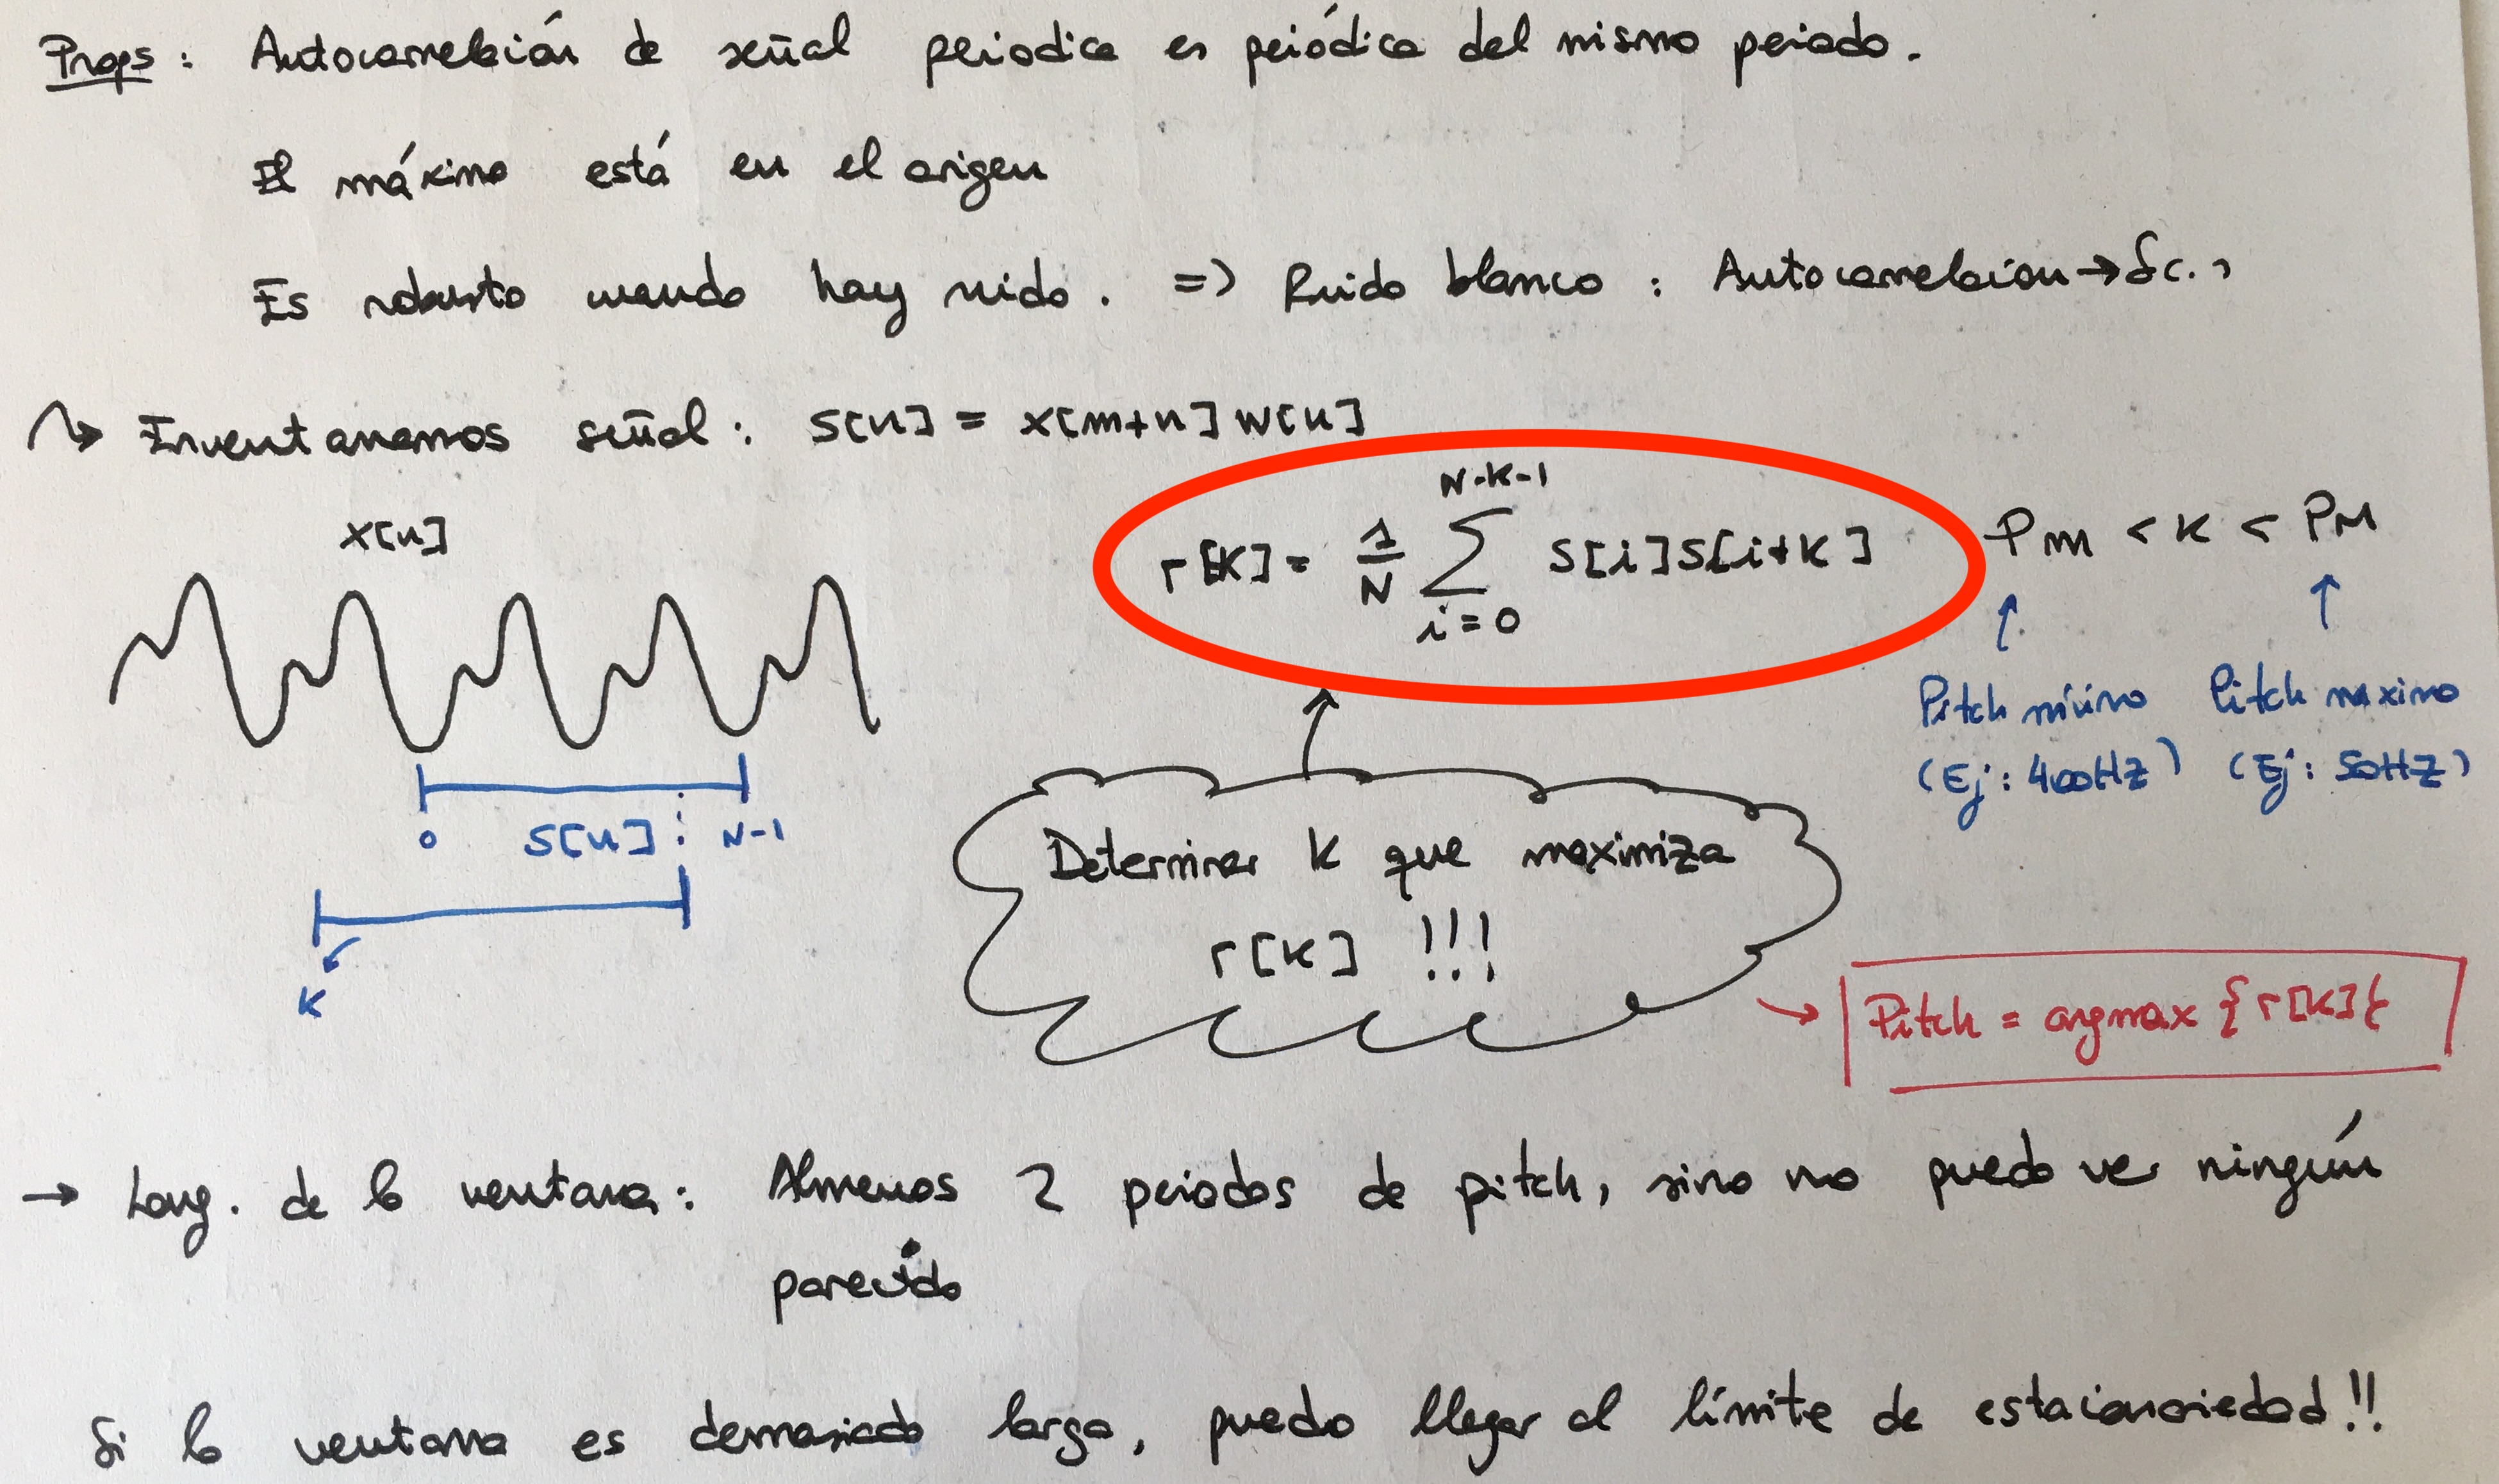 Props: Autocorrelación de señal periodica es periódica del mismo periodo.
El máximo está en el origen
Es robusto cuando hay ruido. => Ruido blanco: Autocorrelacion → δ(·)
Inventanemos señal: s[n] = x[m+n] w[n]
x[n]
r[k] = 1/N ∑ s[i]s[i+k]
N-k-1
i=0
Pm < k < PM
Pitch mínimo (Ej: 400Hz)
Pitch maximo (Ej: 50Hz)
0 s[n] N-1
k
Determinar k que maximiza
r[k] !!!
Pitch = argmax {r[k]}
→ Long. de la ventana: Almenos 2 periodos de pitch, sino no puedo ver ningún
parecido
Si la ventana es demasiado larga, puedo llegar al límite de estacionariedad!!